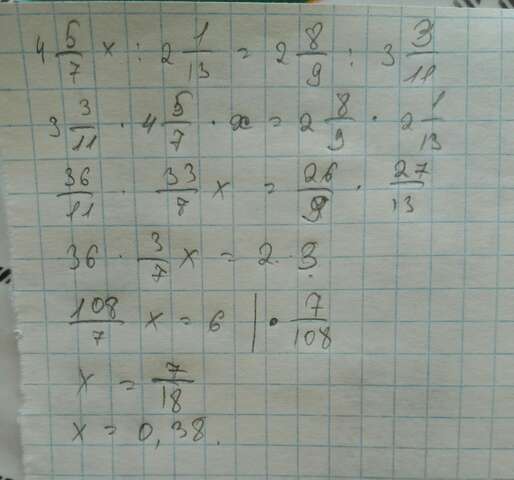 4 5/7 x : 2 1/13 = 2 8/9 : 3 3/11
3 3/11 · 4 5/7 · x = 2 8/9 · 2 1/13
36/11 · 33/7 x = 26/9 · 27/13
36 · 3/7 x = 2 · 3
108/7 x = 6 | · 7/108
x = 7/18
x = 0,38.